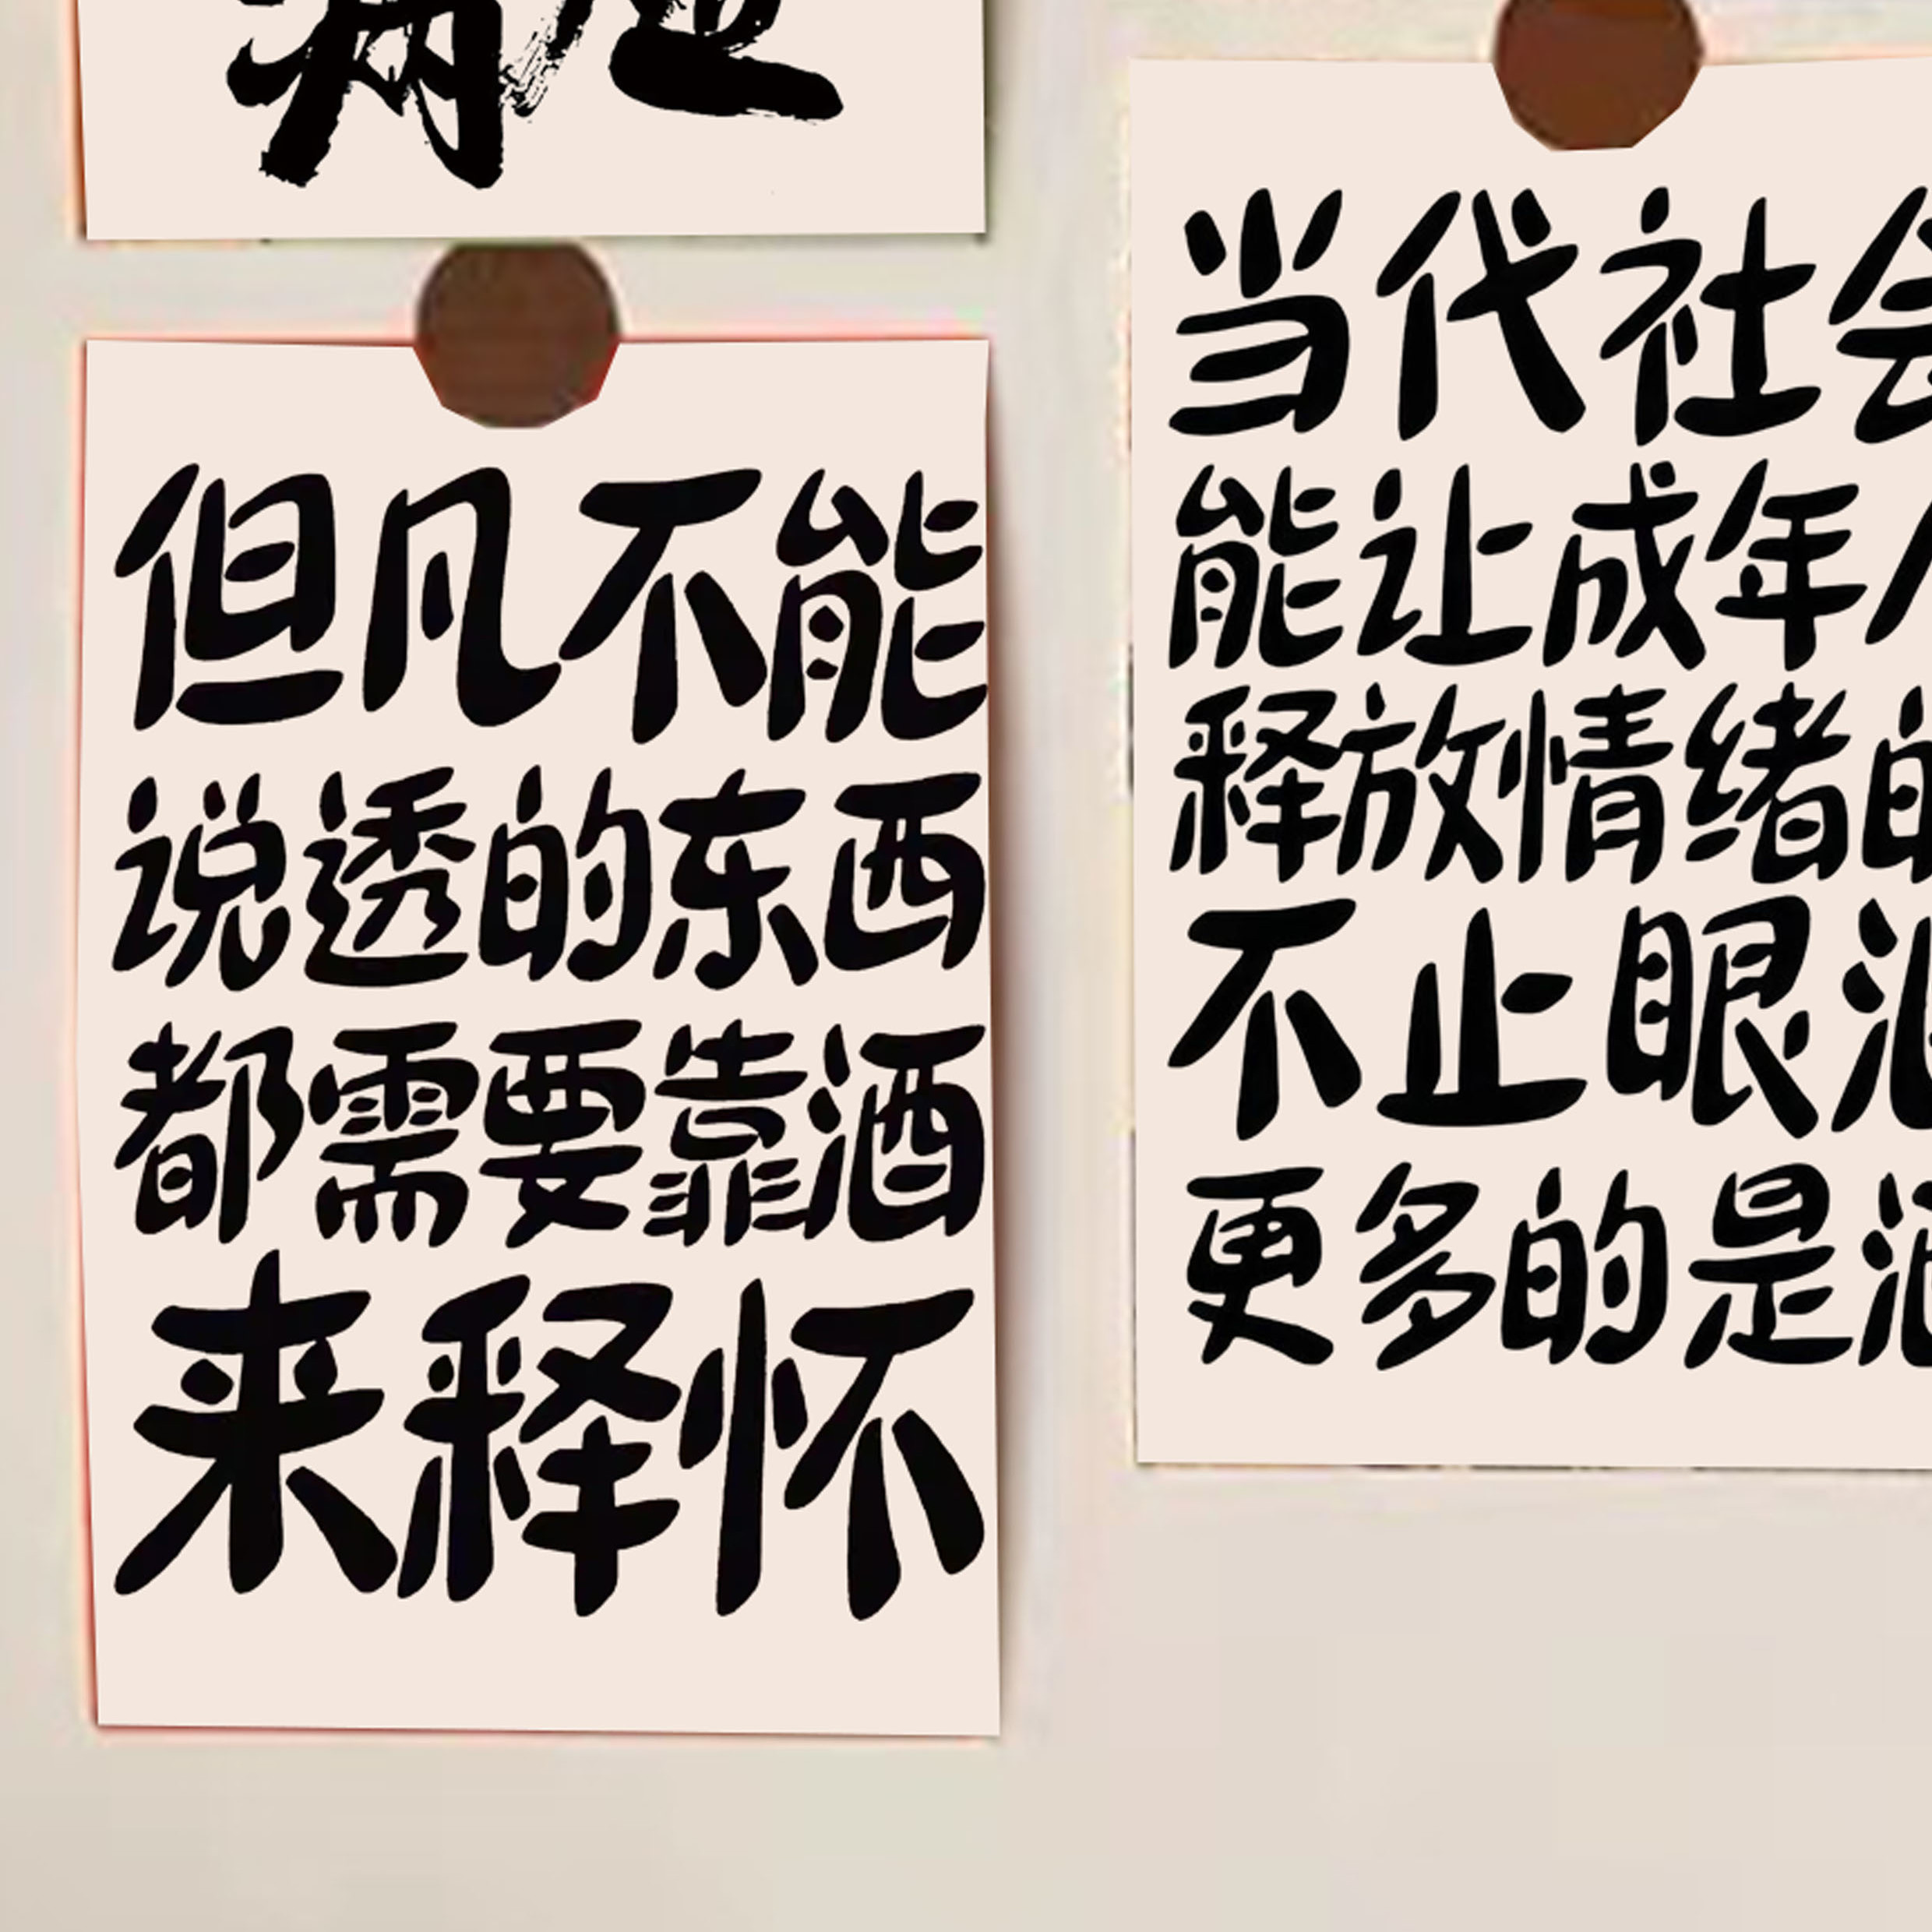 但凡不能
说透的东西
都需要靠酒
来释怀
当代社会
能让成年
释放情绪的
不止眼泪
更多的是酒